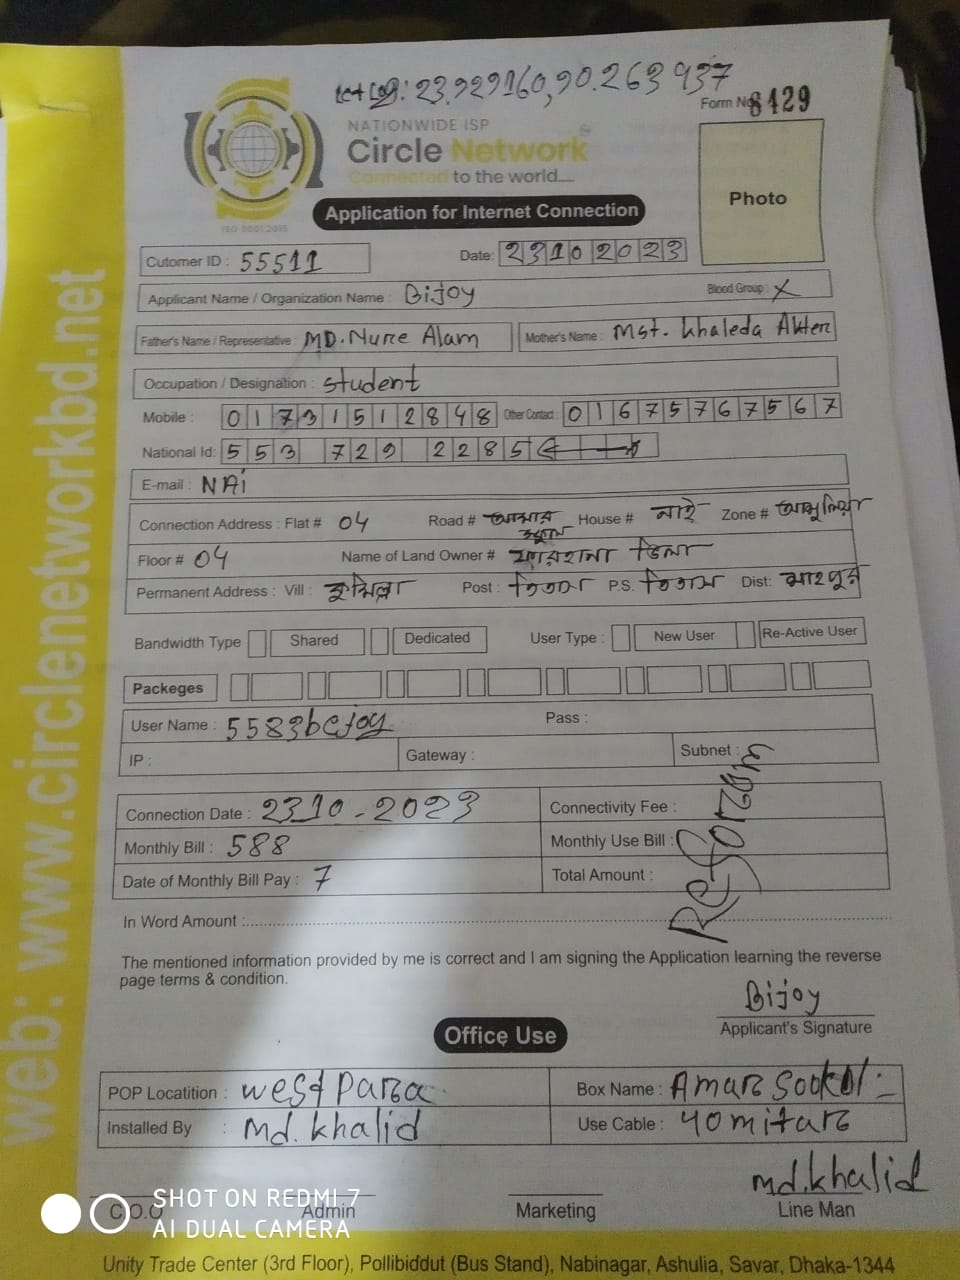 Let Log: 23.929160, 90.263937
Form No 8129
NATIONWIDE ISP
Circle Network
Connected to the world....
ISO 9001:2015
Application for Internet Connection
Photo
Cutomer ID : 55511 Date: 23102023
Applicant Name / Organization Name : Bijoy Blood Group : X
Father's Name / Representative : MD. Nure Alam Mother's Name : Mst. Khaleda Akter
Occupation / Designation : Student
Mobile : 01731512848 Other Contact : 01675767567
National Id: 553 729 2285
E-mail : NAi
Connection Address : Flat # 04 Road # আমার স্কুল House # নাই Zone # আশুলিয়া
Floor # 04 Name of Land Owner # ফারহানা ভিলা
Permanent Address : Vill : কুমিল্লা Post : তিতাস P.S. তিতাস Dist:
Bandwidth Type Shared Dedicated User Type : New User Re-Active User
Packeges
User Name : 5583bejoy Pass :
IP : Gateway : Subnet :
Connection Date : 2310-2023 Connectivity Fee :
Monthly Bill : 588 Monthly Use Bill :
Date of Monthly Bill Pay : 7 Total Amount :
In Word Amount :
The mentioned information provided by me is correct and I am signing the Application learning the reverse
page terms & condition.
Bijoy
Applicant's Signature
Office Use
POP Locatition : west para Box Name : Amar Sookul
Installed By : Md. Khalid Use Cable : 40 mitar
md. khalid
C.O.O Admin Marketing Line Man
Unity Trade Center (3rd Floor), Pollibiddut (Bus Stand), Nabinagar, Ashulia, Savar, Dhaka-1344
web: www.circlenetworkbd.net
SHOT ON REDMI 7
AI DUAL CAMERA